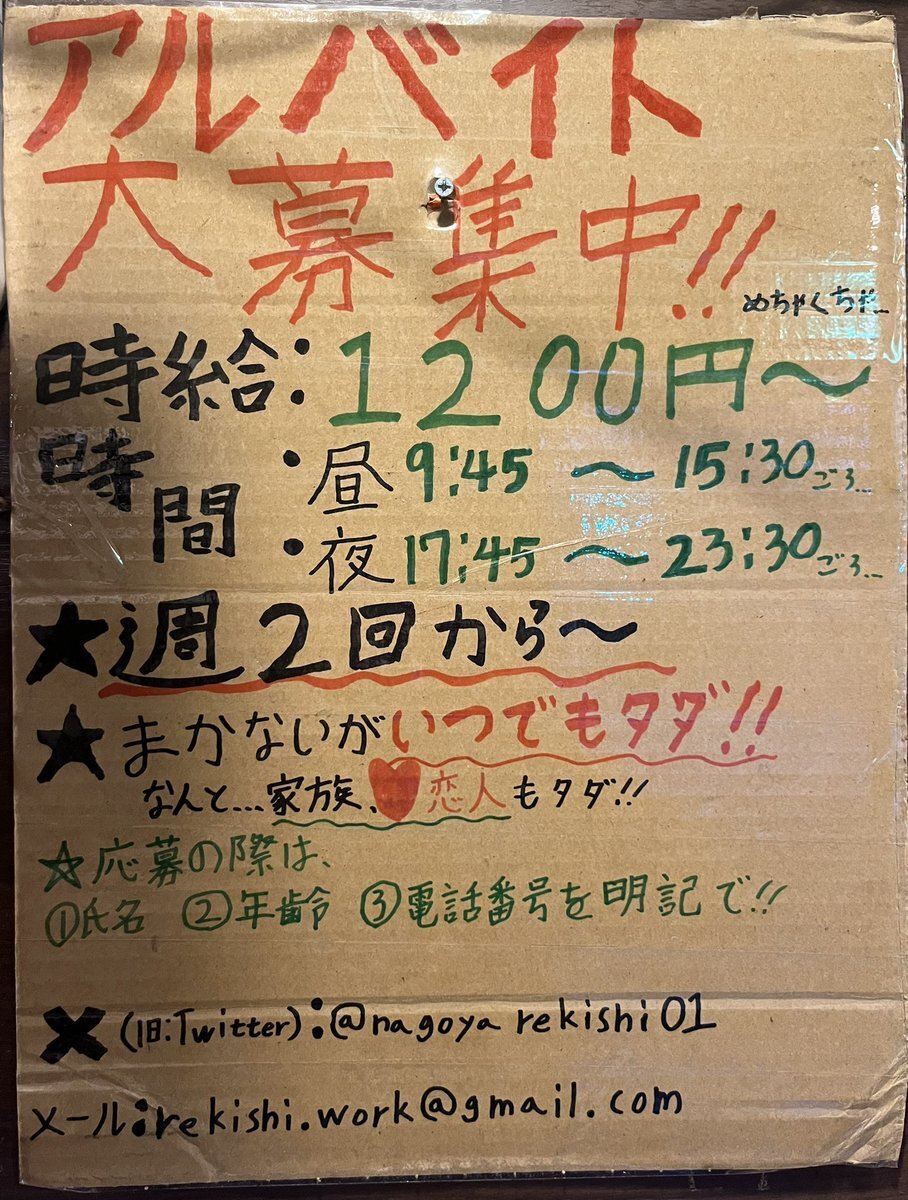 アルバイト
大募集中!!
めちゃくちゃ...
時給:1200円〜
時間・昼 9:45 〜 15:30ごろ...
・夜 17:45 〜 23:30ごろ...
★週2回から〜
★まかないがいつでもタダ!!
なんと...家族、♥恋人もタダ!!
☆応募の際は、
①氏名 ②年齢 ③電話番号を明記で!!
X(旧:Twitter):@nagoya rekishi01
メール:rekishi.work@gmail.com